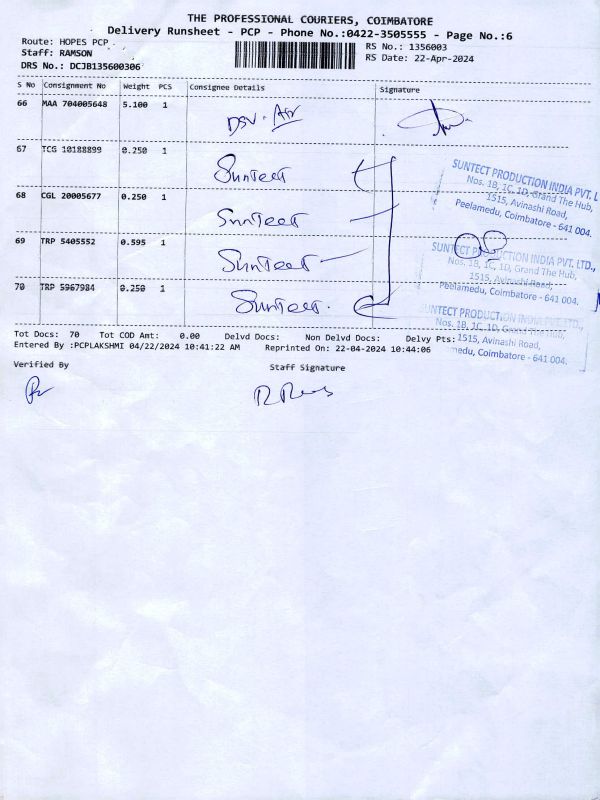 THE PROFESSIONAL COURIERS, COIMBATORE
Delivery Runsheet - PCP - Phone No.:0422-3505555 - Page No.:6
Route: HOPES PCP
RS No.: 1356003
Staff: RAMSON
RS Date: 22-Apr-2024
DRS No.: DCJB135600306
S No Consignment No Weight PCS Consignee Details Signature
66 MAA 704005648 5.100 1 DSV. Air
67 TCG 10188899 0.250 1 Suntect
SUNTECT PRODUCTION INDIA PVT. L
Nos. 1B, 1C, 1D, Grand The Hub,
1515, Avinashi Road,
Peelamedu, Coimbatore - 641 004.
68 CGL 20005677 0.250 1 Suntect
69 TRP 5405552 0.595 1 Suntect
SUNTECT PRODUCTION INDIA PVT. LTD.,
Nos. 1B, 1C, 1D, Grand The Hub,
1515, Avinashi Road,
Peelamedu, Coimbatore - 641 004.
70 TRP 5967984 0.250 1 Suntect.
SUNTECT PRODUCTION INDIA PVT. LTD.,
Nos. 1B, 1C, 1D, Grand The Hub,
Tot Docs: 70 Tot COD Amt: 0.00 Delvd Docs: Non Delvd Docs: Delvy Pts:
1515, Avinashi Road,
Entered By :PCPLAKSHMI 04/22/2024 10:41:22 AM Reprinted On: 22-04-2024 10:44:06
medu, Coimbatore - 641 004.
Verified By Staff Signature